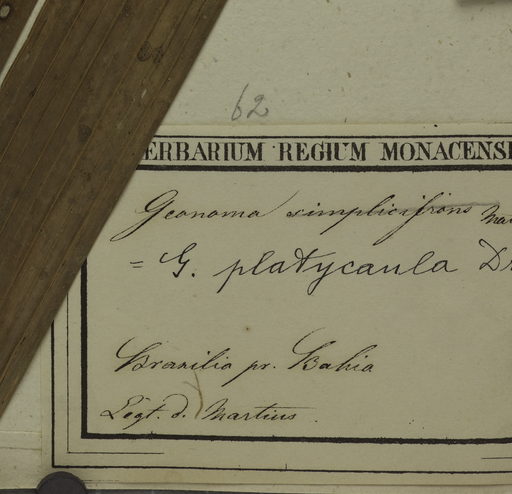 62
ERBARIUM REGIUM MONACENS
Geonoma simplicifrons Mar
= G. platycaula Dr
Brasilia pr. Bahia
Legt. d. Martius